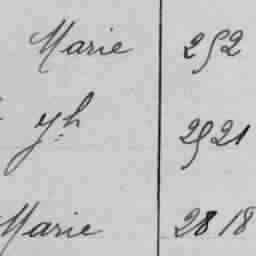 Marie 252
yh 2521
Marie 2818